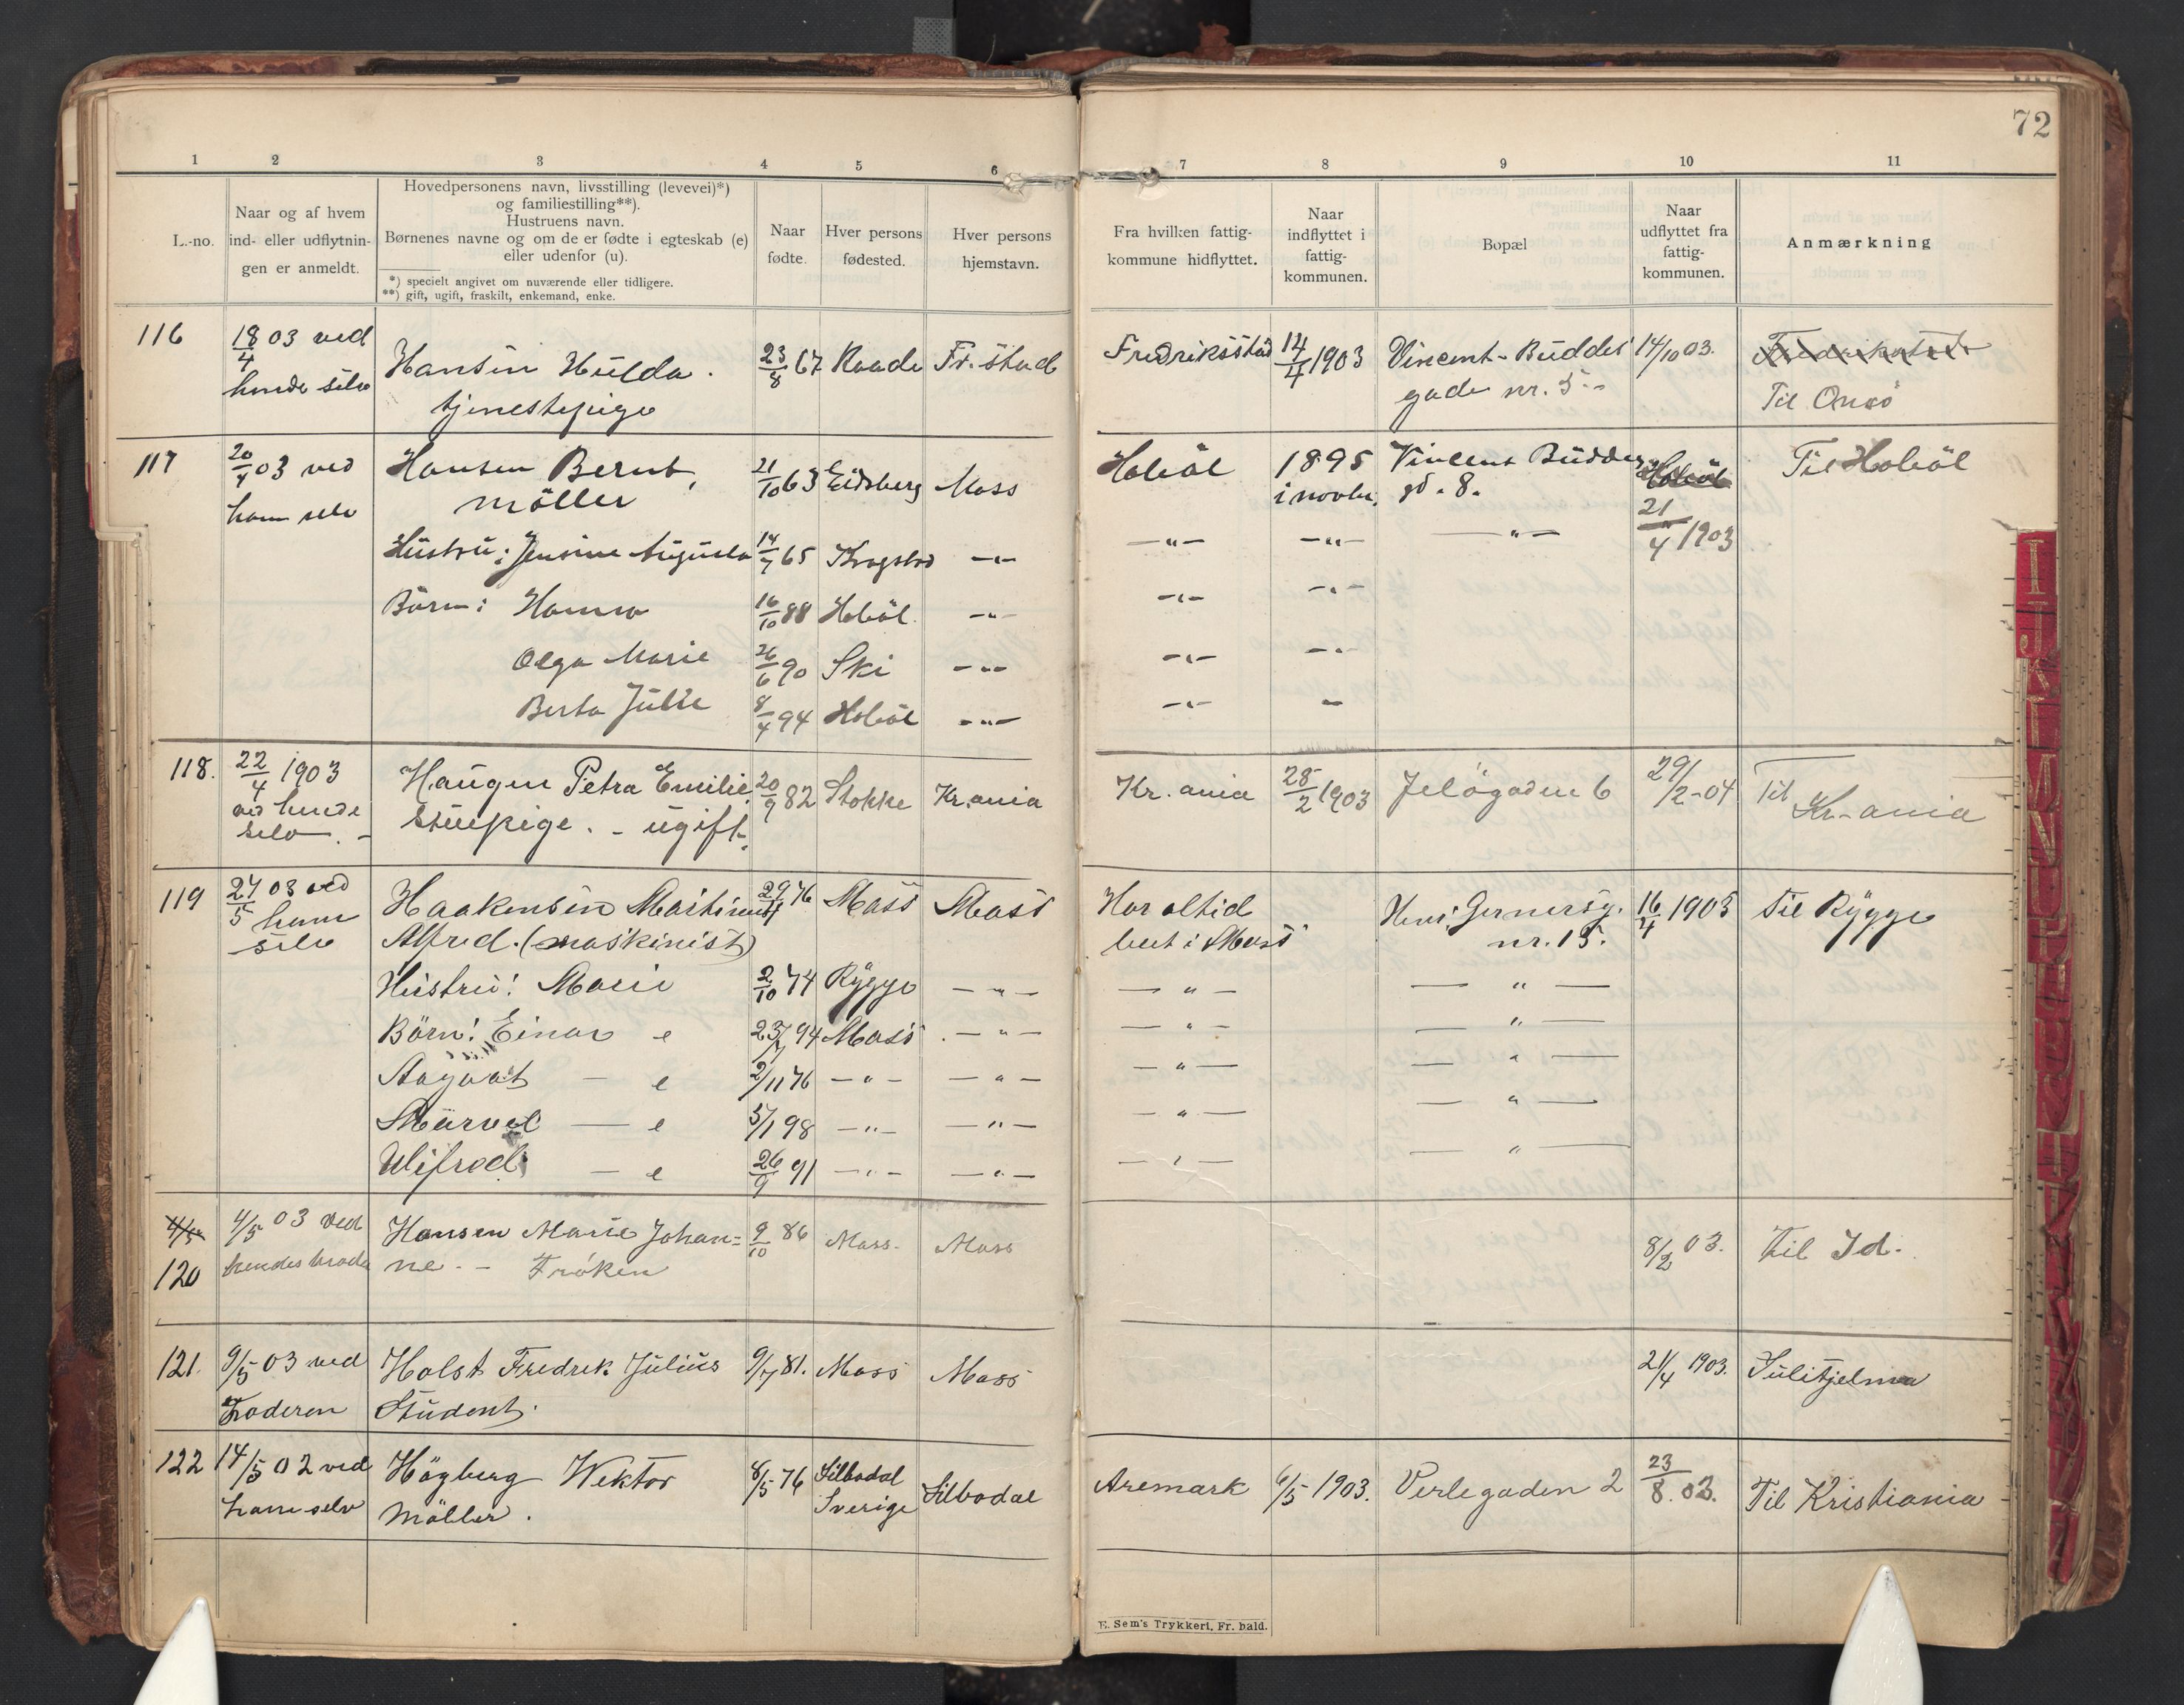 72
1 2 3 4 5 6 7 8 9 10 11
L.-no.
Naar og af hvem
ind- eller udflytnin-
gen er anmeldt.
Hovedpersonens navn, livsstilling (levevei)*)
og familiestilling**).
Hustruens navn.
Børnenes navne og om de er fødte i egteskab (e)
eller udenfor (u).
*) specielt angivet om nuværende eller tidligere.
**) gift, ugift, fraskilt, enkemand, enke.
Naar
fødte.
Hver persons
fødested.
Hver persons
hjemstavn.
Fra hvilken fattig-
kommune hidflyttet.
Naar
indflyttet i
fattig-
kommunen.
Bopæl
Naar
udflyttet fra
fattig-
kommunen.
Anmærkning
116 18/4 03 ved Hansen Hulda. 23/8 67 Raade Fr.stad Fredriksstad 14/4 1903 Vincent-Buddes 14/10 03. Fredrikstad
hende selv tjenestepige gade nr. 5 Til Onsö
117 20/4 03 ved Hansen Bernt, 21/10 63 Eidsberg Moss Hoböl 1895 Vincent Buddes Hoböl Til Hoböl
ham selv möller i novbr. gd. 8. 21/4 1903
Hustru: Jensine Augusta 14/7 65 Kragstad -"- -"- -"- -"-
Börn: Hanna 16/10 88 Hoböl -"- -"- -"-
Olga Marie 26/6 90 Ski -"- -"- -"-
Berta Julie 8/4 94 Hoböl -"- -"- -
118. 22/4 1903 Haugen Petra Emilie 20/9 82 Stokke Kr.ania Kr.ania 28/2 1903 Jelögaden 6 29/2-04 Til
ved hende Stuepige. - ugift. Kr-ania
selv. -
119 27/5 03 ved Haakensen Martinus 29/4 76 Moss Moss Har altid Henr. Gernersg. 16/4 1903 Til Rygge
ham Alfred. (maskinist) boet i Moss nr. 15.
selv
Hustru: Marie 2/10 74 Rygge -"- -"- -"-
Börn: Einar e 23/7 94 Moss -"- -"- -"-
Aagvat - e 2/11 76 -"- -"- -"- -"-
Marvel - e 5/1 98 -"- -"- -"- -"-
Ulifred - e 26/9 91 -"- -"- -"- -"-
4/5
120 4/5 03 ved Hansen Marie Johan= 9/10 86 Moss. Moss 8/2 03. Til Id.
hendes broder ne. - Fröken
121. 9/5 03 ved Holst Fredrik Julius 9/7 81. Moss Moss 21/4 1903. Sulitjelma
Faderen Student.
122 14/5 02 ved Högberg Wektor 8/5 76 Silbodal Silbodal Aremark 6/5 1903. Verlegaden 2 23/8. 03. Til Kristiania
ham selv Möller. Sverige
E. Sem's Trykkeri, Fr. hald.